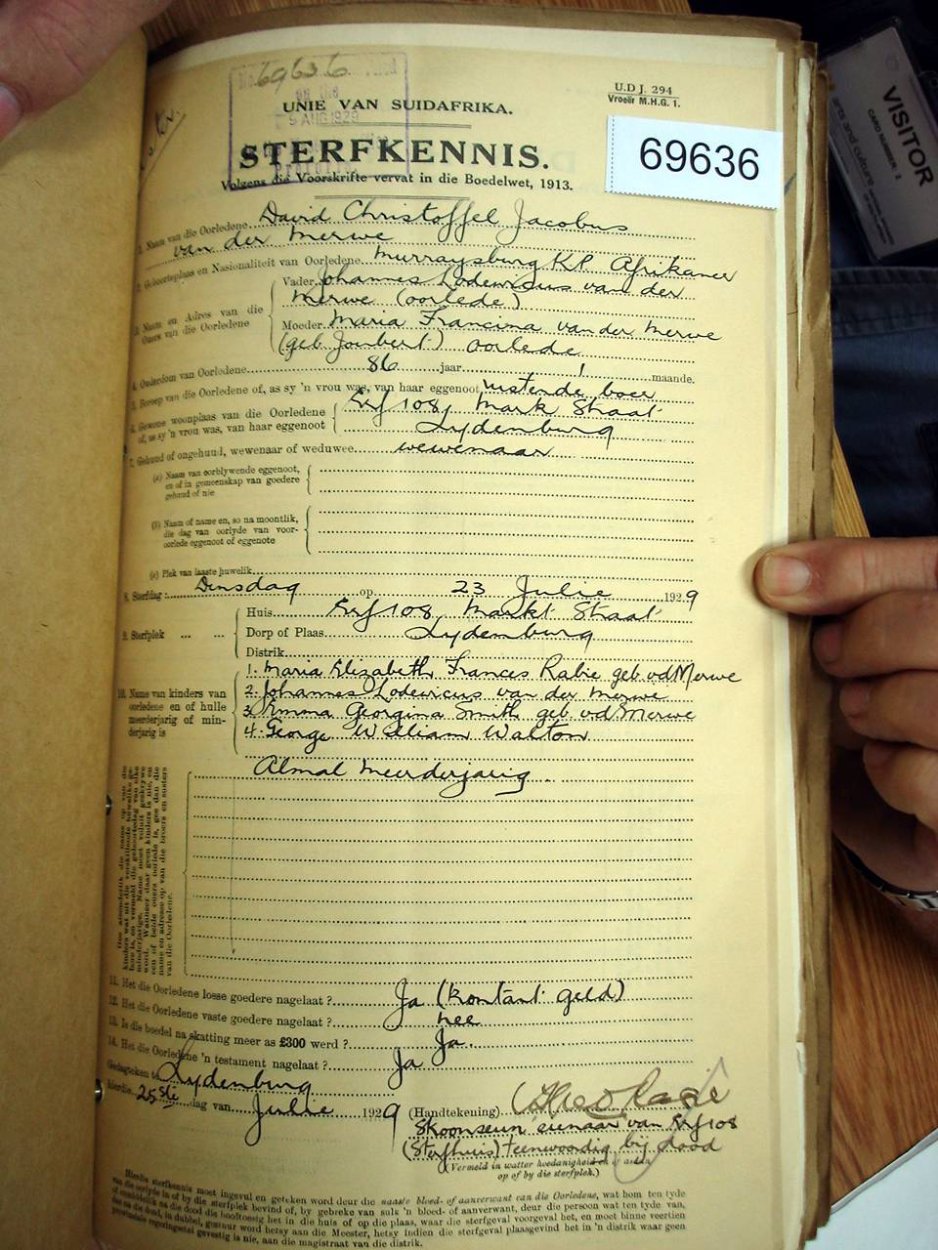 69636
5 AUG 1929
UNIE VAN SUIDAFRIKA.
U.D J. 294
Vroeër M.H.G. 1.
STERFKENNIS.
69636
Volgens die Voorskrifte vervat in die Boedelwet, 1913.
VISITOR
CARD NUMBER: 2
arts and culture
1. Naam van die Oorledene David Christoffel Jacobus
van der Merwe
2. Geboorteplaas en Nasionaliteit van Oorledene Murraysburg KP Afrikaner
3. Naam en Adres van die Ouers van die Oorledene
Vader Johannes Lodewicus van der
Merwe (oorlede)
Moeder Maria Francina van der Merwe
(geb Joubert) oorlede
4. Ouderdom van Oorledene 86 jaar 1 maande.
5. Beroep van die Oorledene of, as sy 'n vrou was, van haar eggenoot rustende boer
6. Gewone woonplaas van die Oorledene Erf 108, Mark Straat
of, as sy 'n vrou was, van haar eggenoot Lydenburg
7. Gehuud of ongehuud, wewenaar of weduwee wewenaar
(a) Naam van oorblywende eggenoot,
en of in gemeenskap van goedere
gehuud of nie
(b) Naam of name en, so na moontlik,
die dag van oorlyde van voor-
oorlede eggenoot of eggenote
(c) Plek van laaste huwelik
8. Sterfdag: Dinsdag op 23 Julie 1929
9. Sterfplek ... ...
Huis Erf 108, Markt Straat
Dorp of Plaas Lydenburg
Distrik
10. Name van kinders van
oorledene en of hulle
meerderjarig of min-
derjarig is
1. Maria Elizabeth Frances Rabie geb vd Merwe
2. Johannes Lodewicus van der Merwe
3. Emma Georgina Smith geb vd Merwe
4. George William Walton
Almal Meerderjarig
11. Het die Oorledene losse goedere nagelaat? Ja (kontant geld)
12. Het die Oorledene vaste goedere nagelaat? nee
13. Is die boedel na skatting meer as £300 werd? Ja.
14. Het die Oorledene 'n testament nagelaat? Ja
Gedagteken te Lydenburg
hierdie 25ste dag van Julie 1929
(Handtekening)
Skoonseun eienaar van Erf 108
(Sterfhuis) teenwoordig by dood
(Vermeld in watter hoedanigheid en of
op of by die sterfplek.)
Hierdie sterfkennis moet ingevul en geteken word deur die naaste bloed- of aanverwant van die Oorledene, wat hom ten tyde
van die oorlyde in of by die sterfplek bevind of, by gebreke van sulk 'n bloed- of aanverwant, deur die persoon wat ten tyde van,